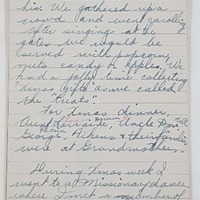 his. We gathered up a
crowd and went caroling
After singing at the
gates we would be
served with popcorn,
nuts candy or apples. We
had a jolly time collecting
"Xmas Gifts" as we called
the treats".
For Xmas dinner,
Aunt Uncle Don
George, Aikens & their families
were at Grandmother's.
During Xmas week I
went to a Missionary dance
where I met a number of